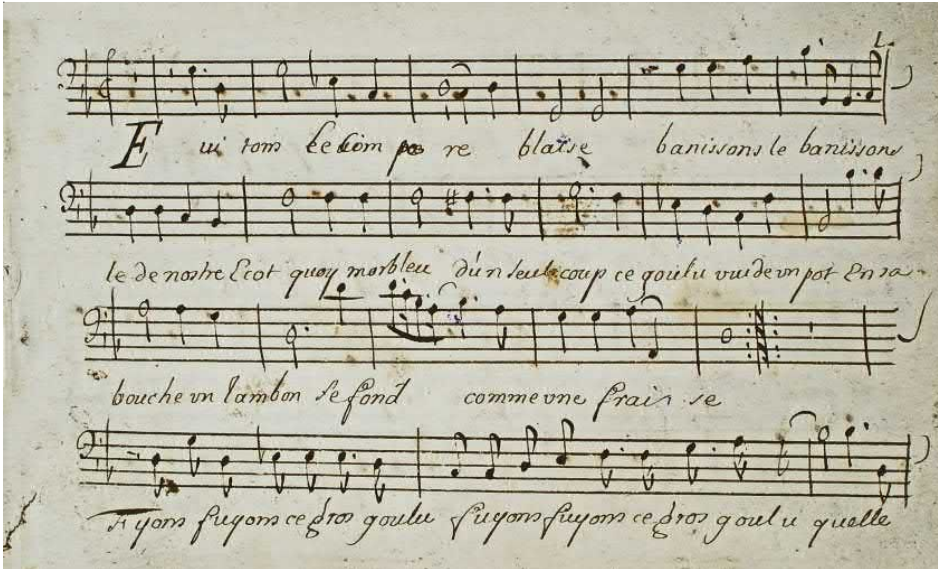 1.
E ui tons le Com pe re blaise banissons le banissons
le de nostre Ecot quoy morbleu d'un seul coup ce goulu vuide vn pot En sa
bouche vn Iambon se fond comme vne frais se
fu yons fuyons ce gros goulu fuyons fuyons ce gros goulu quelle